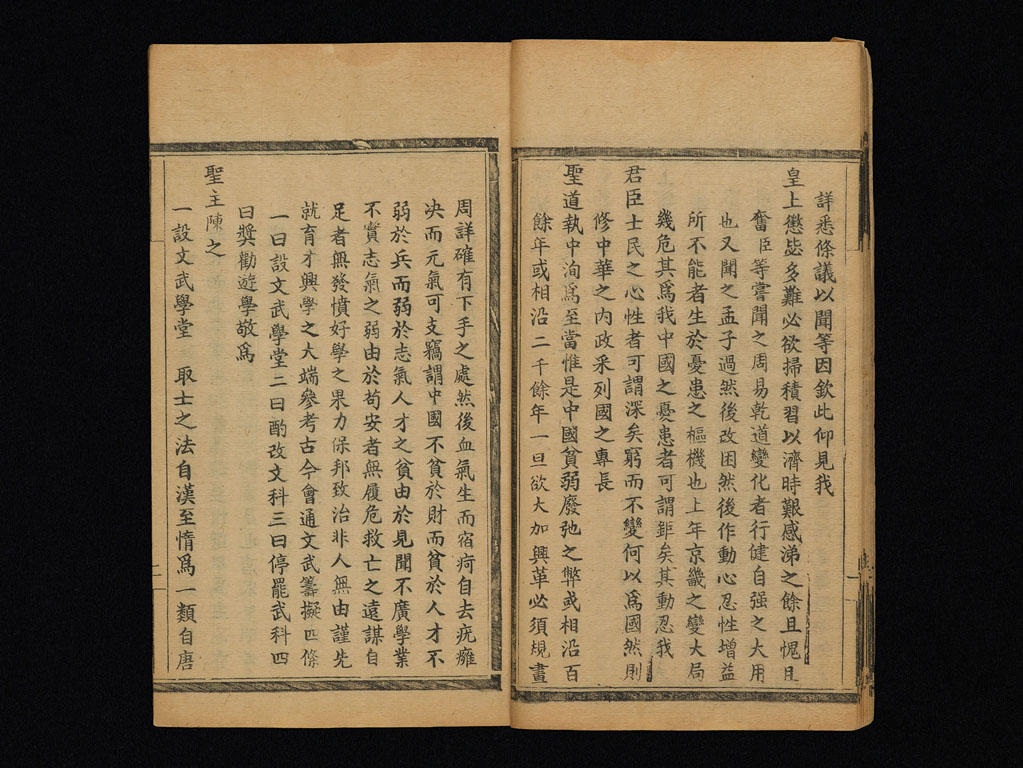 詳悉條議以聞等因欽此仰見我
皇上懲毖多難必欲掃積習以濟時艱感涕之餘且愧且
奮臣等嘗聞之周易乾道變化者行健自强之大用
也又聞之孟子過然後改困然後作動心忍性增益
所不能者生於憂患之樞機也上年京畿之變大局
幾危其爲我中國之憂患者可謂鉅矣其動忍我
君臣士民之心性者可謂深矣窮而不變何以爲國然則
修中華之內政采列國之專長
聖道執中洵爲至當惟是中國貧弱廢弛之弊或相沿百
餘年或相沿二千餘年一旦欲大加興革必須規畫
周詳確有下手之處然後血氣生而宿疴自去疣癰
决而元氣可支竊謂中國不貧於財而貧於人才不
弱於兵而弱於志氣人才之貧由於見聞不廣學業
不實志氣之弱由於苟安者無履危救亡之遠謀自
足者無發憤好學之果力保邦致治非人無由謹先
就育才興學之大端參考古今會通文武籌擬四條
一曰設文武學堂二曰酌改文科三曰停罷武科四
曰奬勸遊學敬爲
聖主陳之
一設文武學堂 取士之法自漢至惰爲一類自唐
二
一